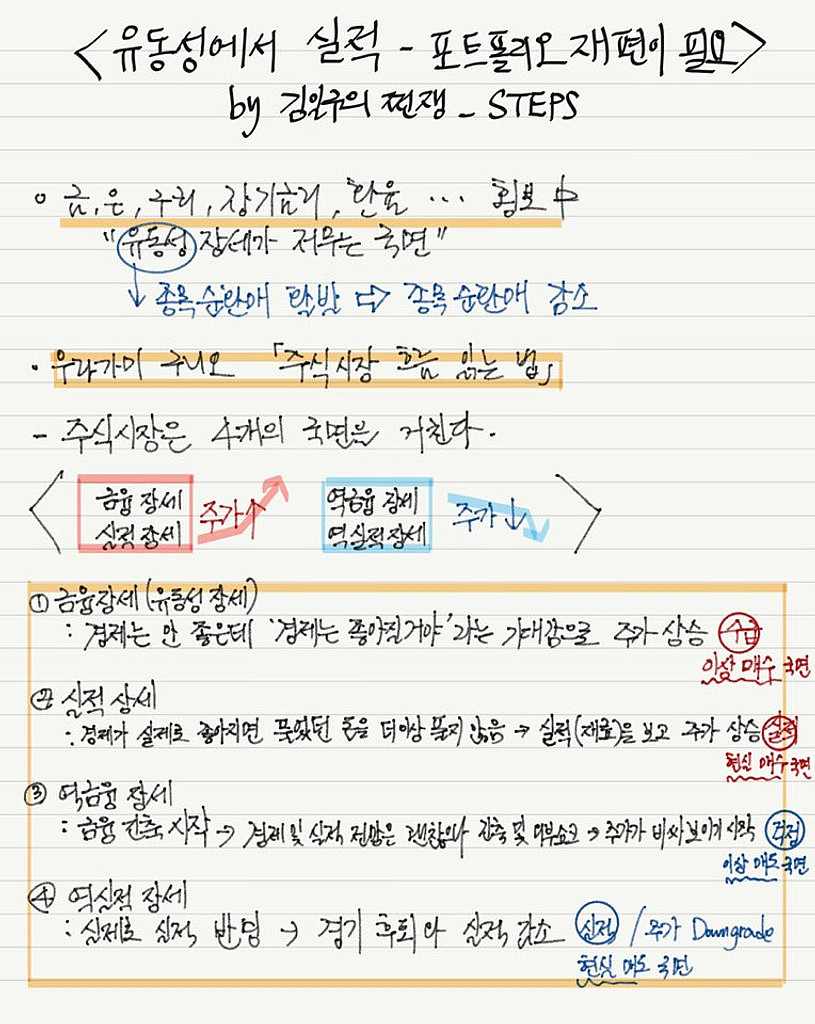 <유동성에서 실적 - 포트폴리오 재편이 필요>
by 김일구의 쩐쟁 _ STEPS
금, 은, 구리, 장기금리, 환율 ... 횡보中
"유동성 장세가 저무는 국면"
↓ 종목순환매 활발 ⇨ 종목순환매 감소
· 우라가미 구니오 「주식시장 흐름 읽는 법」
- 주식시장은 4개의 국면을 거친다.
금융 장세 실적 장세 주가↑ 역금융 장세 역실적 장세 주가↓
① 금융장세 (유동성 장세)
: 경제는 안 좋은데 '경제는 좋아질거야'라는 기대감으로 주가 상승 수급
이상 매수 국면
② 실적 장세
: 경제가 실제로 좋아지면 풀었던 돈을 더이상 풀지 않음 → 실적(재료)을 보고 주가 상승 실적
현실 매수 국면
③ 역금융 장세
: 금융 긴축 시작 → 경제 및 실적 전망은 괜찮으나 긴축 및 외부쇼크 → 주가가 비싸 보이기 시작 걱정
이상 매도 국면
④ 역실적 장세
: 실제로 실적 반영 → 경기 후퇴와 실적 감소 실적 / 주가 Downgrade
현실 매도 국면